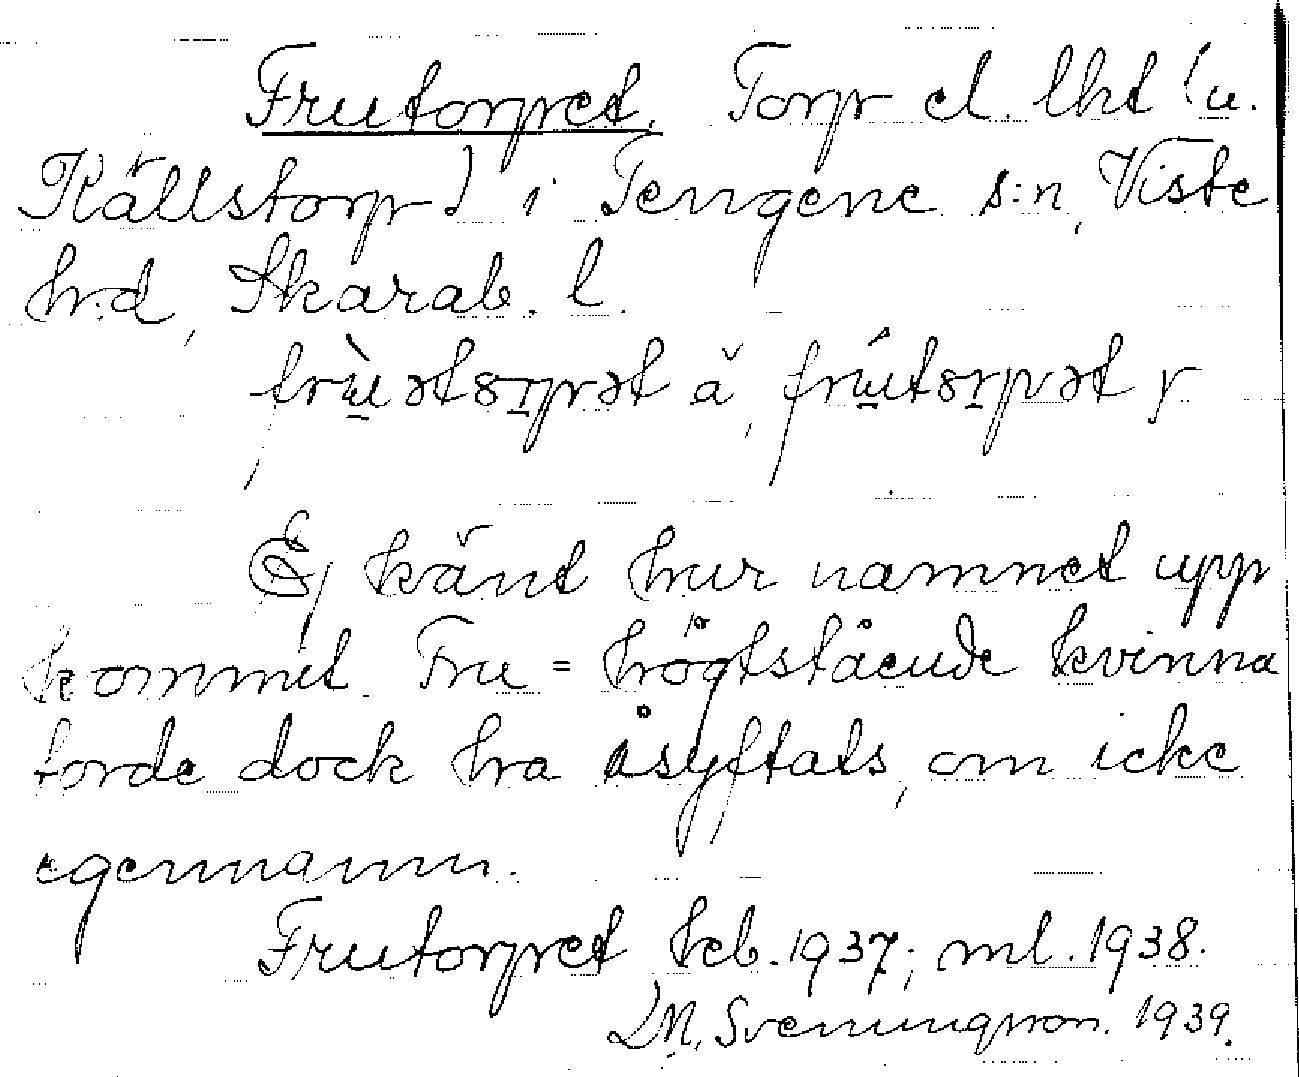 Frutorpet. Torp el. lht (u.
Källstorp) i Tengene s:n, Viste
h:d, Skarab. l.
frùətorpət ä, frútorpət
Ej känt hur namnet upp
kommit. Fru = högtstående kvinna
torde dock ha åsyftats, om icke
egennamn.
Frutorpet keb. 1937; ml. 1938.
M. Svenungson. 1939.